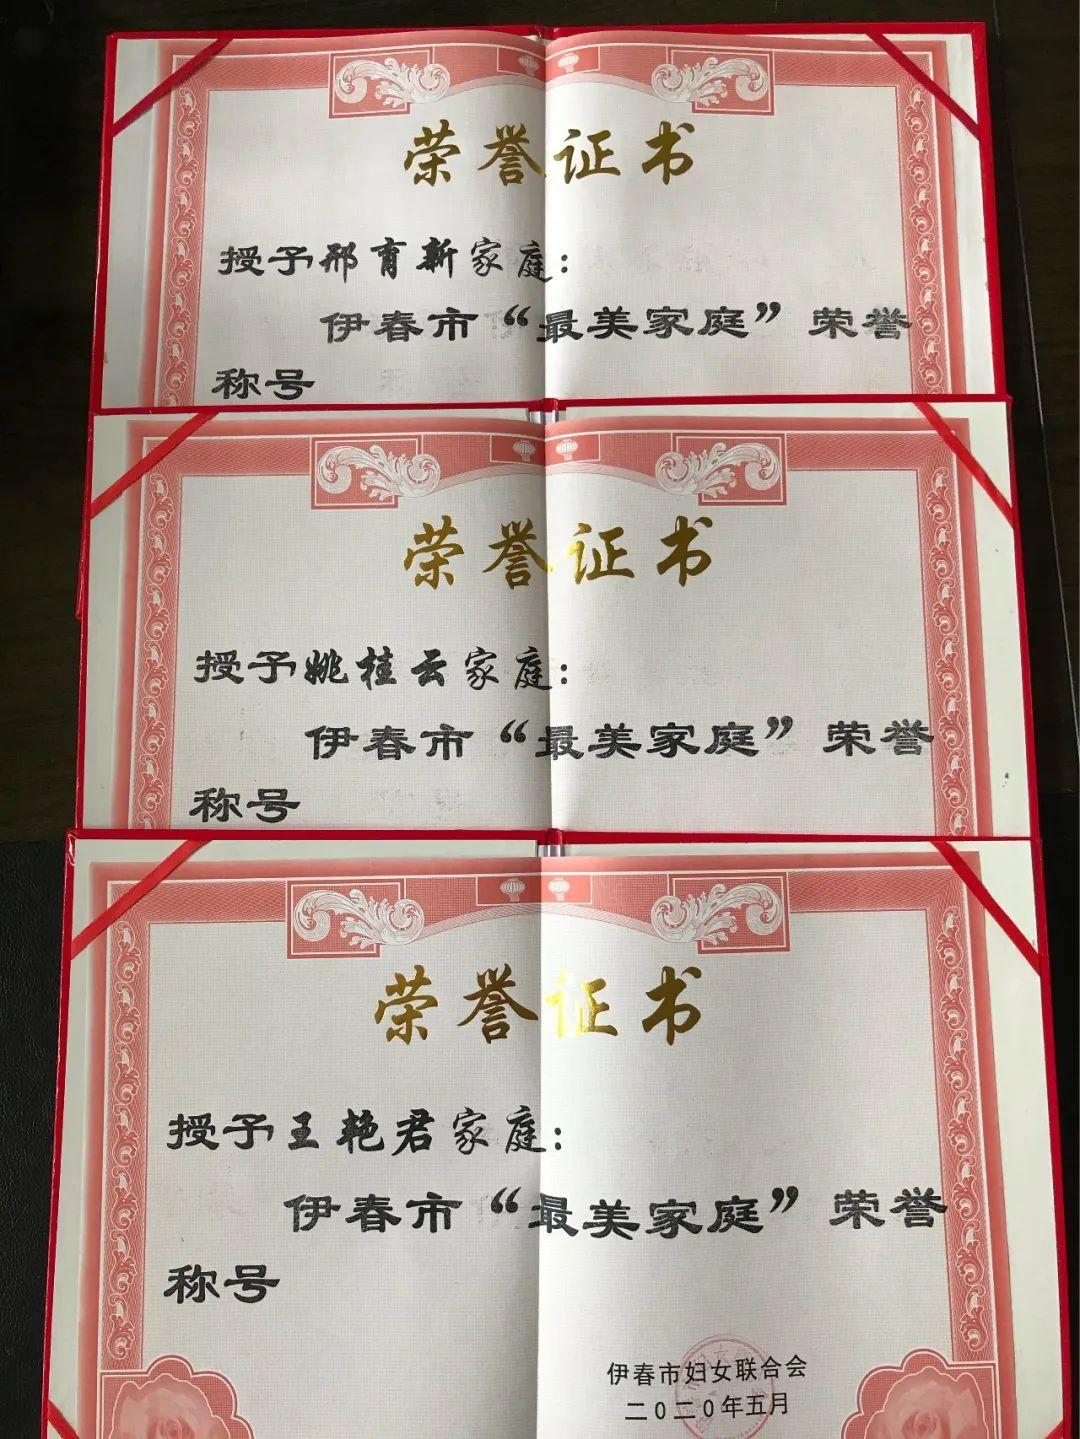 荣誉证书
授予邢育新家庭:
伊春市“最美家庭”荣誉
称号
荣誉证书
授予姚桂云家庭:
伊春市“最美家庭”荣誉
称号
荣誉证书
授予王艳君家庭:
伊春市“最美家庭”荣誉
称号
伊春市妇女联合会
二〇二〇年五月